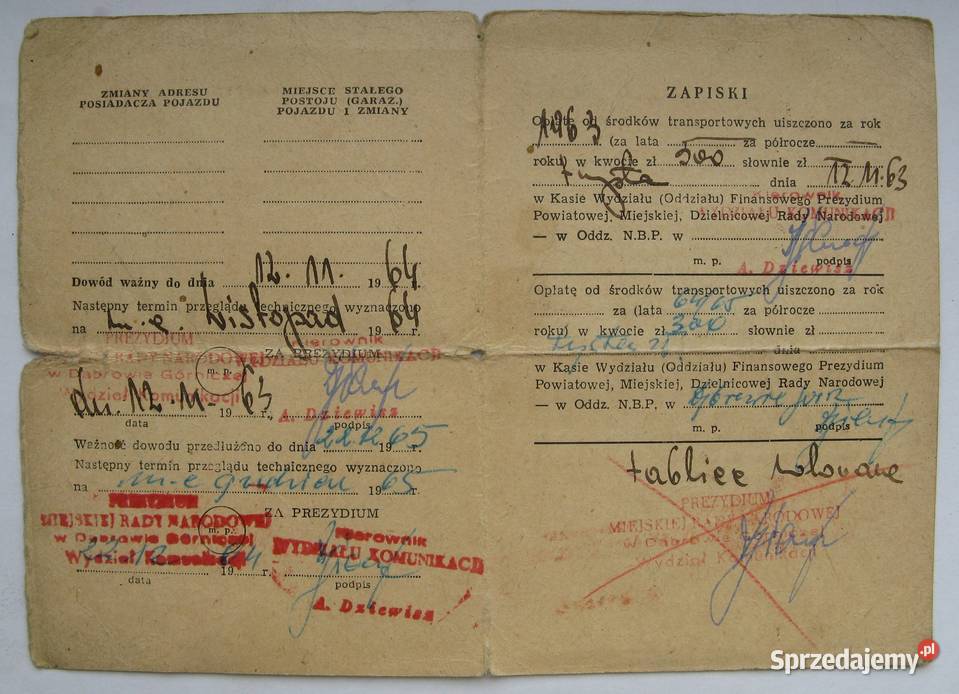 ZMIANY ADRESU
POSIADACZA POJAZDU
MIEJSCE STAŁEGO
POSTOJU (GARAŻ.)
POJAZDU I ZMIANY
Dowód ważny do dnia 12. 11. 1964.
Następny termin przeglądu technicznego wyznaczono
na m-c Listopad 1964 r.
PREZYDIUM
MIEJSKIEJ RADY NARODOWEJ
w Dąbrowie Górniczej
Wydział Komunikacji
ZA PREZYDIUM
Kierownik
WYDZIAŁU KOMUNIKACJI
m. p.
dn. 12. 11. 1963 r.
A. Dziewisz
data
podpis
Ważność dowodu przedłużono do dnia 22.12 1965 r.
Następny termin przeglądu technicznego wyznaczono
na m-c grudzień 1965 r.
ZA PREZYDIUM
PREZYDIUM
MIEJSKIEJ RADY NARODOWEJ
w Dąbrowie Górniczej
Wydział Komunikacji
m. p.
Kierownik
WYDZIAŁU KOMUNIKACJI
22 12 1964 r.
A. Dziewisz
data
podpis
ZAPISKI
Opłatę od środków transportowych uiszczono za rok
1963 (za lata za półrocze
roku) w kwocie zł 300 słownie zł
trzysta dnia 12.11.63
w Kasie Wydziału (Oddziału) Finansowego Prezydium
Powiatowej, Miejskiej, Dzielnicowej Rady Narodowej
— w Oddz. N.B.P. w
Kierownik
WYDZIAŁU KOMUNIKACJI
m. p.
podpis
A. Dziewisz
Opłatę od środków transportowych uiszczono za rok
za (lata 64/65 za półrocze
roku) w kwocie zł 300 słownie zł
dnia
w Kasie Wydziału (Oddziału) Finansowego Prezydium
Powiatowej, Miejskiej, Dzielnicowej Rady Narodowej
— w Oddz. N.B.P. w
m. p.
podpis
tablice
PREZYDIUM
MIEJSKIEJ RADY NARODOWEJ
w Dąbrowie Górniczej
Wydział Komunikacji
Sprzedajemy.pl